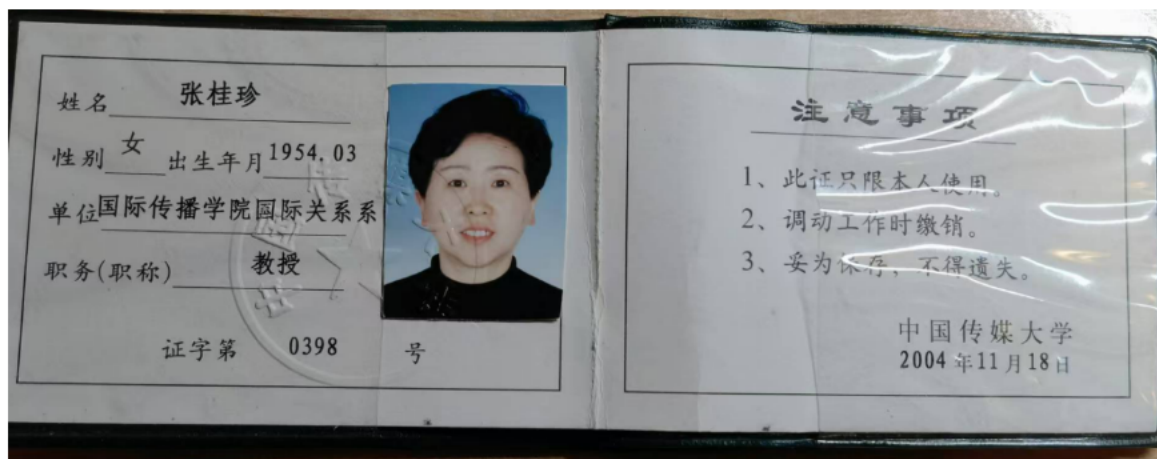 姓名 张桂珍
性别 女 出生年月 1954.03
单位 国际传播学院国际关系系
职务(职称) 教授
证字第 0398 号
注意事项
1、此证只限本人使用。
2、调动工作时缴销。
3、妥为保存，不得遗失。
中国传媒大学
2004年11月18日